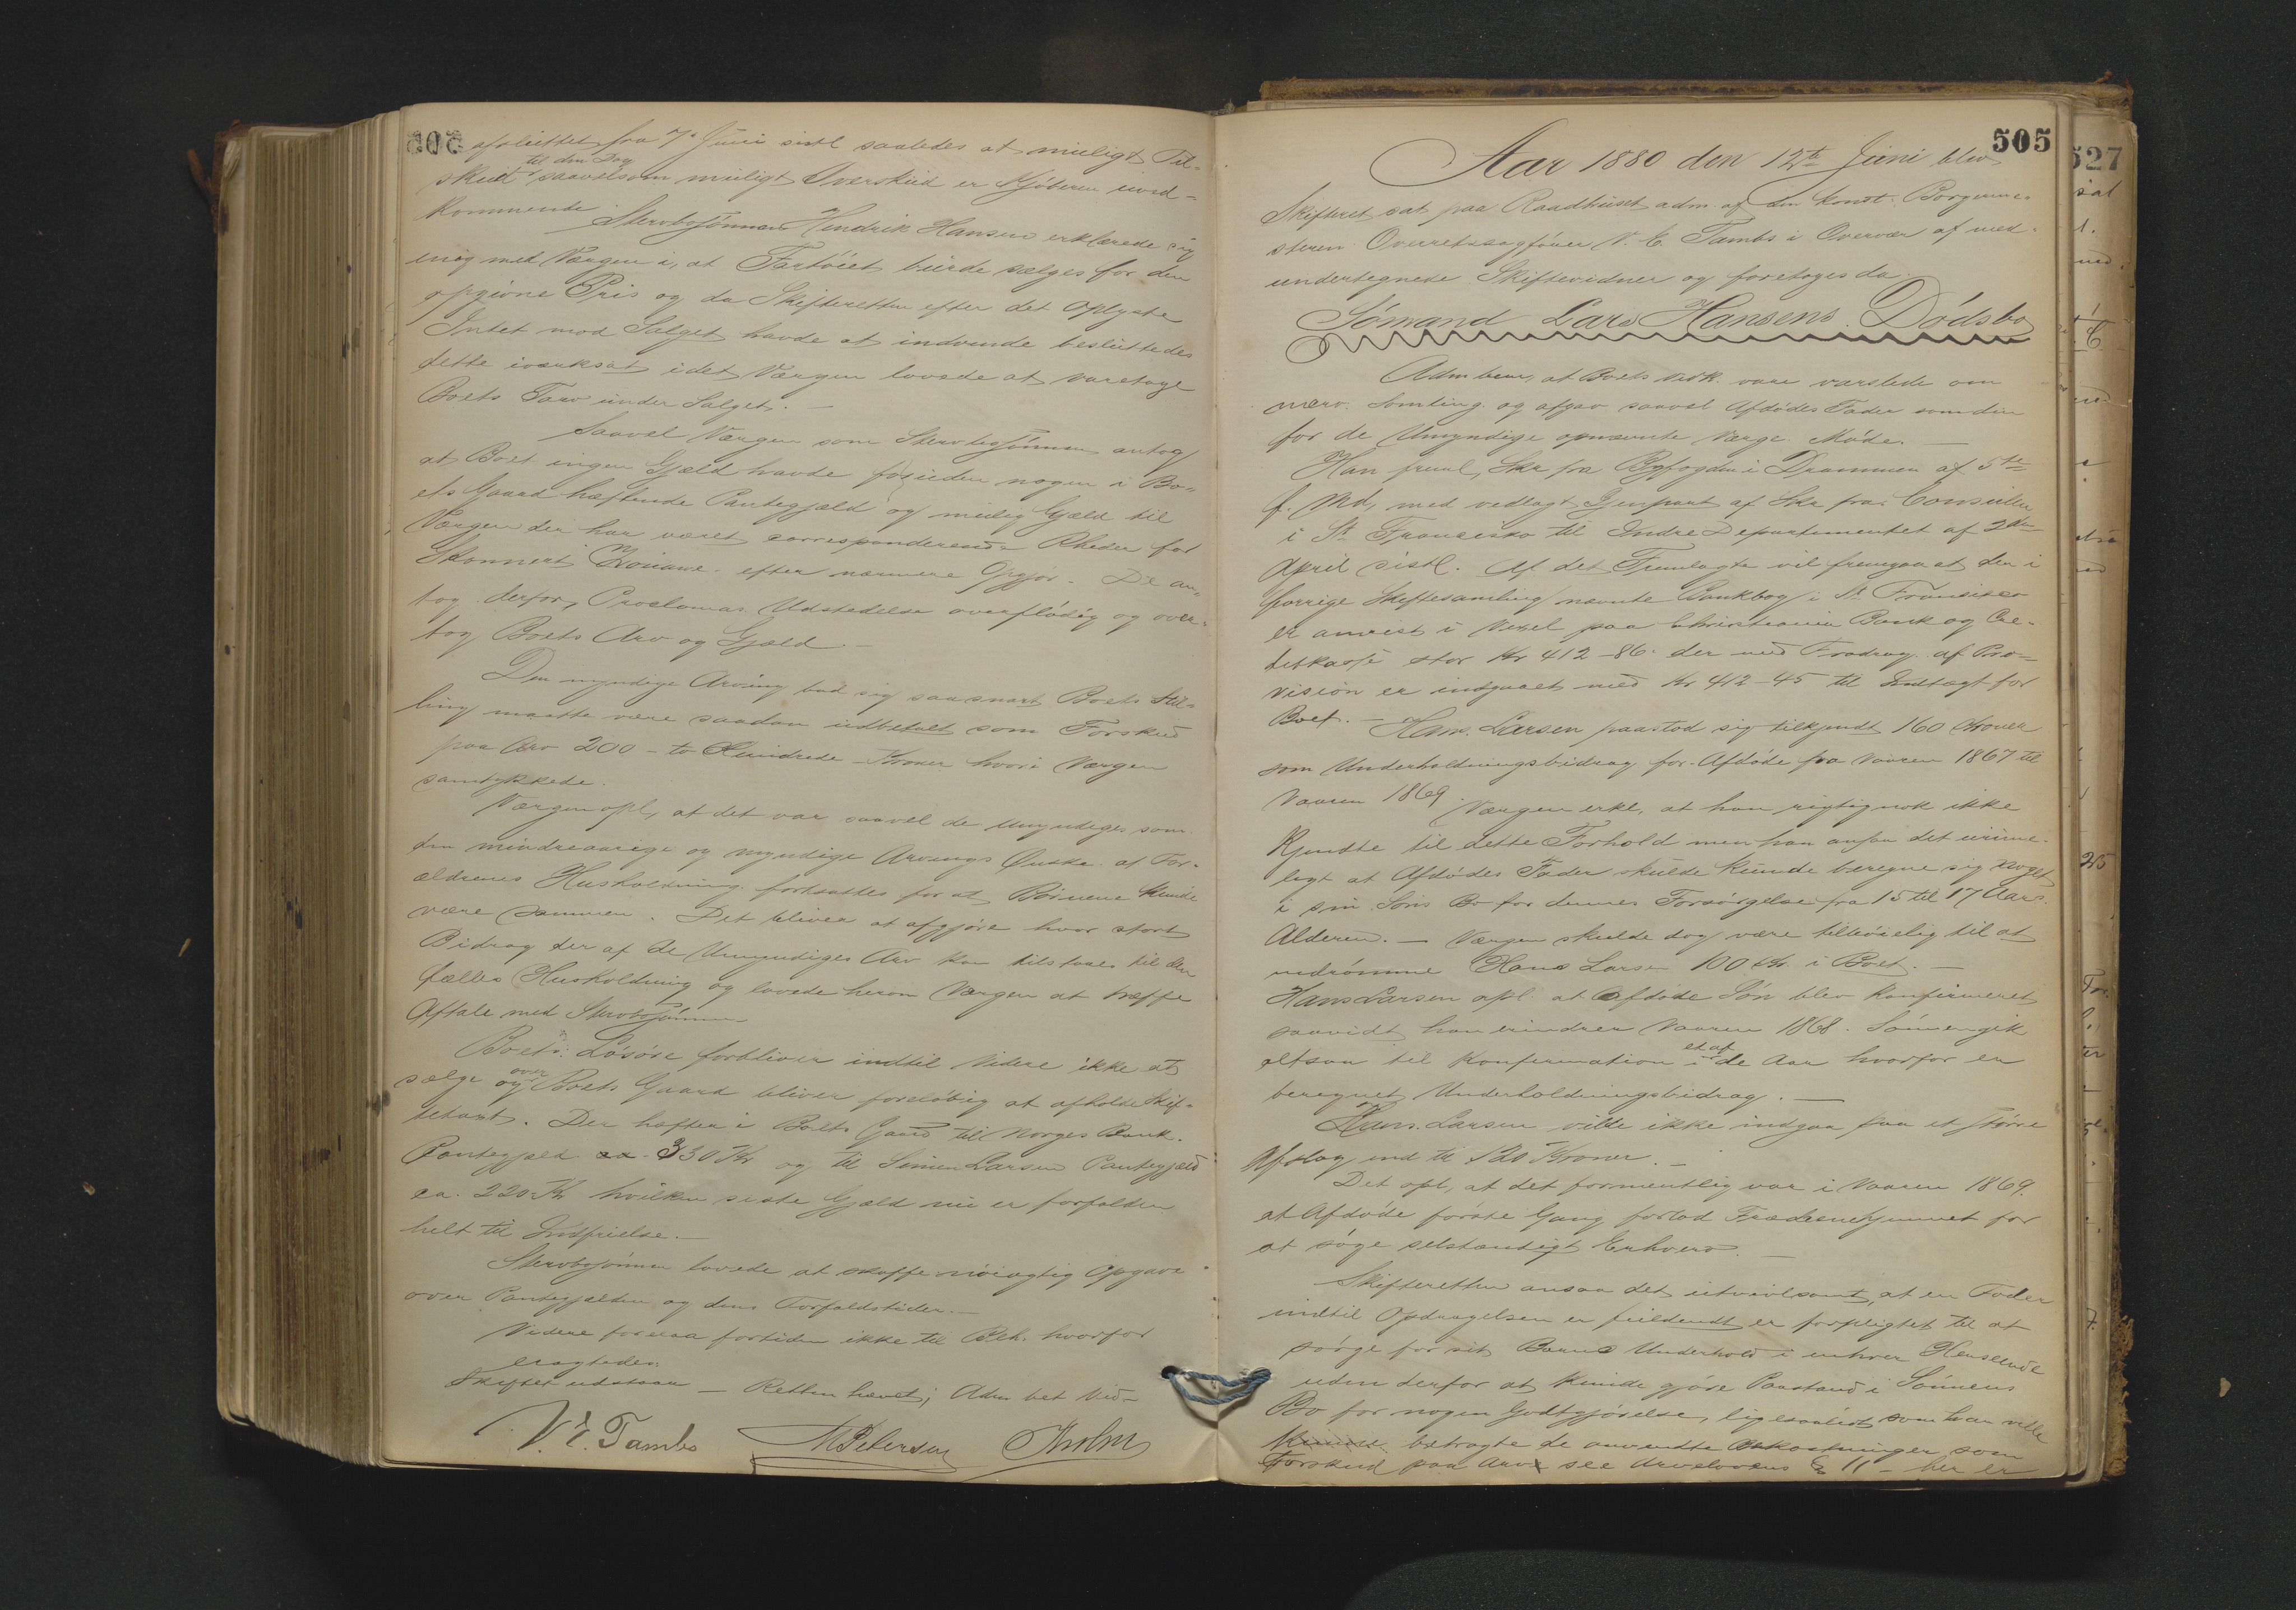 505
afsluttet fra 7de Juni sistl saaledes at muligt Til-
skud til den Dag saavelsom muligt Overskud er Kjøberen uved-
kommende.
Stervbosønnen Hendrik Hansen erklærede sig
enig med Værgen i, at Fartøiet burde sælges for den
opgivne Pris og da Skifteretten efter det Oplyste
Intet mod Salget havde at indvende besluttedes
dette iværksat idet Værgen lovede at varetage
Boets Tarv under Salget. —
Saavel Værgen som Stervbosønnen antog
at Boet ingen Gjæld havde foruden nogen i Bo-
ets Gaard hæftende Pantegjæld og mulig Gjæld til
Værgen der har været corresponderende Rheder for
Skonnert efter nærmere Opgjør. De an-
tog derfor, Proclamas Udstedelse overflødig og over-
tog Boets Arv og Gjæld. —
Den myndige Arving bad sig saasnart Boets Stil-
ling maatte være saadan udbetalt som Forskud
paa Arv 200 – to Hundrede – Kroner hvori Værgen
samtykkede.
Værgen opl, at det var saavel de Umyndiges som
den mindreaarige og myndige Arvings Ønske at For-
ældrenes Husholdning fortsattes for at Børnene kunde
være sammen. Det bliver at afgjøre hvor stort
Bidrag der af de Umyndiges Arv kan tilstaaes til den
fælles Husholdning og lovede herom Værgen at træffe
Aftale med Stervbosønnen
Boets Løsøre forbliver indtil Videre ikke at
sælge og over Boets Gaard bliver foreløbig at afholde Skif-
tetaxt. Der hæfter i Boets Gaard til Norges Bank
Pantegjæld ca 330 Kr og til Simen Larsen Pantegjæld
ca. 220 Kr hvilken siste Gjæld nu er forfalden
helt til Indfrielse. —
Stervbosønnen lovede at skaffe nøiagtig Opgave
over Pantegjælden og dens Forfaldstider. —
Videre forelaa fortiden ikke til Beh. hvorfor
eragtedes:
Skiftet udstaar — Retten hævet; Adm bet Vid-
V. E. Tambs M Petersen Holm
505
Aar 1880 den 12te Juni blev
Skifteret sat paa Raadhuset adm. af den konst. Borgerme-
steren Overretssagfører V. E. Tambs i Overvær af med-
undertegnede Skiftevidner og foretoges da:
Sømand Lars Hansens Dødsbo
Adm bem, at Boets Vedk. vare varslede om
nærv. Samling og afgav saavel Afdødes Fader som den
for de Umyndige opnævnte Værge Møde. —
Han freml, Skr fra Byfogden i Drammen af 5te
f. Md, med vedlagt Gjenpart af Skr fra Consulen
i St Francisko til Indre Departementet af 2den
April sistl. Af det Fremlagte vil fremgaa at den i
forrige Skiftesamling nævnte Bankbog i St Francisco
er anvist i Vexel paa Christiania Bank og Cre-
ditkasse stor Kr 412–86 der med Fradrag af Pro-
vision er indgaaet med Kr 412–45 til Indtægt for
Boet. — Hans Larsen paastod sig tilkjendt 160 Kroner
som Underholdningsbidrag for Afdøde fra Vaaren 1867 til
Vaaren 1869.
Værgen erkl, at han rigtignok ikke
kjendte til dette Forhold men han ansaa det urime-
ligt at Afdødes Fader skulde kunde beregne sig noget
i sin Søns Bo for dennes Forsørgelse fra 15 til 17 Aars
Alderen. — Værgen skulde dog være tilbøielig til at
indrømme Hans Larsen 100 Kr. i Boet. —
Hans Larsen opl at Afdøde Søn blev konfirmeret
saavidt han erindrer Vaaren 1868. Sønnen gik
altsaa til Konfirmation i et af de Aar hvorfor er
beregnet Underholdningsbidrag. —
Hans Larsen vilde ikke indgaa paa et større
Afslag end til 120 Kroner. —
Det opl, at det formentlig var i Vaaren 1869
at Afdøde første Gang forlod Fædrenehjemmet for
at søge selvstændigt Erhverv. —
Skifteretten ansaa det utvivlsomt, at en Fader
indtil Opdragelsen er fuldendt er forpligtet til at
sørge for sit Barns Underhold i enhver Henseende
uden derfor at kunde gjøre Paastand i Sønnens
Bo for nogen Godtgjørelse, ligesaalidt som han vilde
kunne betragte de anvendte Omkostninger som
Forskud paa Arv see Arvelovens § 11 – her er
527